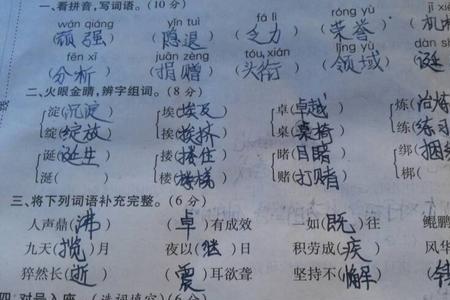 一、看拼音,写词语。(10分)
wán qiáng yǐn tuì fá lì róng yù jī xiè
(顽强) (隐退) (乏力) (荣誉) (机
fēn xī juān zèng tóu xián lǐng yù dàn
(分析) (捐赠) (头衔) (领域) (诞
二、火眼金睛,辨字组词。(8分)
淀(沉淀) 埃(埃及) 卓(卓越) 炼(冶炼
绽(绽放) 挨(挨挤) 桌(桌椅) 练(练习
诞(诞生) 搂(搂住) 睹(目睹) 绑(捆绑
涎( ) 楼(楼梯) 赌(打赌) 梆(
三、将下列词语补充完整。(6分)
人声鼎(沸) (卓)有成效 一如(既)往 鲲鹏
九天(揽)月 夜以(继)日 积劳成(疾) 风华
猝然长(逝) (震)耳欲聋 坚持不(懈)
四、对号入座。(选词填空)(6分)